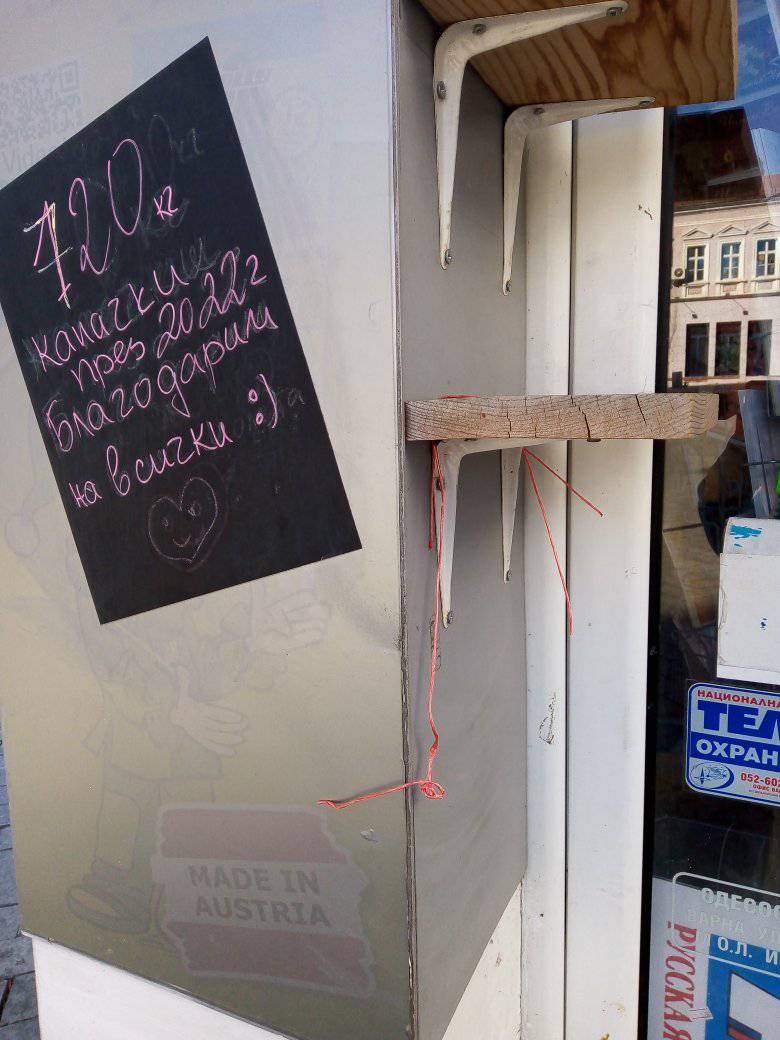 720 кг
капачки
през 2022г
Благодарим
на всички :)
MADE IN
AUSTRIA
НАЦИОНАЛНА
ОХРАН
052-602
ОФИС ВА
ОДЕСОС
ВАРНА УЛ
О.Л. И
РУССКАЯ